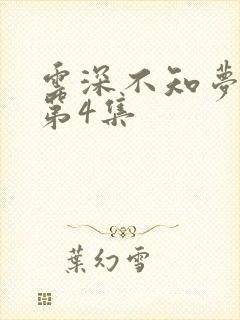 雲深不知夢
第4集
葉幻雪